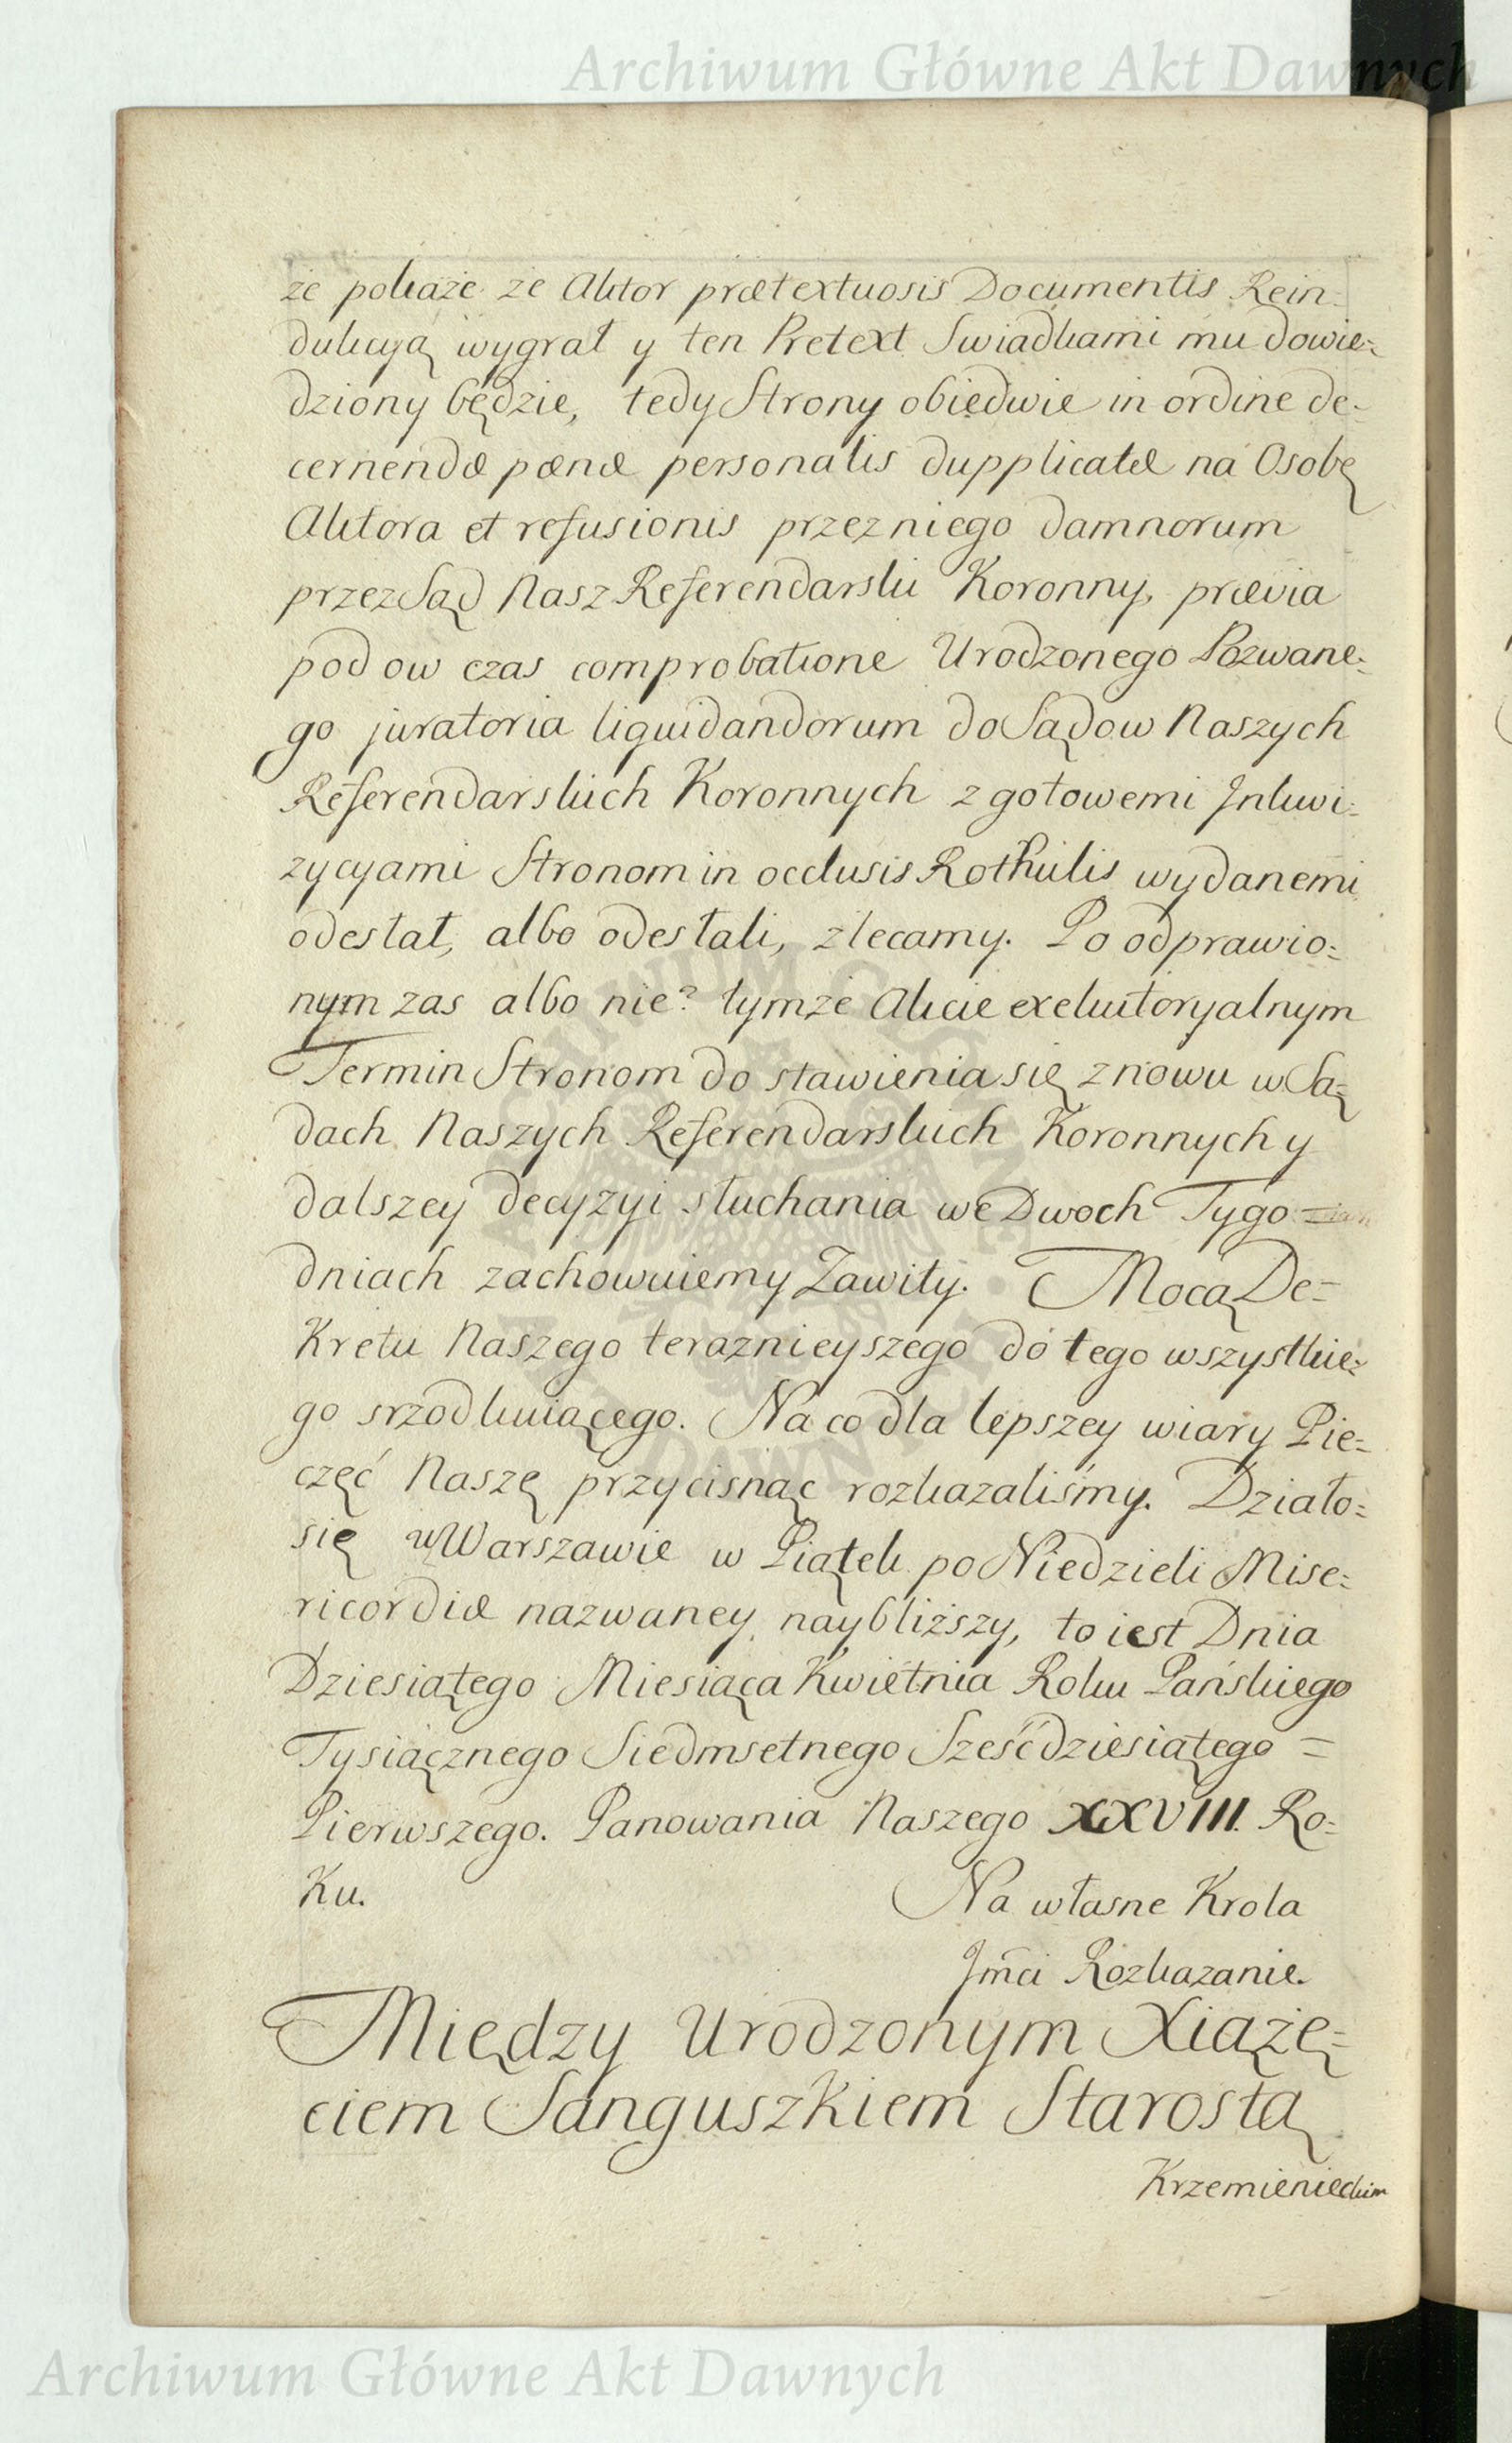 Archiwum Główne Akt Dawnych
że pokaże że Aktor prætextuosis Documentis Rein=
dukcyą wygrał y ten Pretext Swiadkami mu dowie=
dziony będzie, tedy Strony obiedwie in ordine de=
cernendæ pænæ personalis dupplicatæ na Osobę
Aktora et refusionis przez niego damnorum
przez Sąd Nasz Referendarski Koronny, prævia
pod ow czas comprobatione Urodzonego Pozwane=
go juratoria liquidandorum do Sądow Naszych
Referendarskich Koronnych z gotowemi Inkwi=
zycyami Stronom in occlusis Rothulis wydanemi
odesłał, albo odesłali, zlecamy. Po odprawio=
nym zas albo nie? tymże Akcie exekutoryalnym
Termin Stronom do stawienia się znowu w Są=
dach Naszych Referendarskich Koronnych y
dalszey decyzyi słuchania we Dwoch Tygo=
dniach zachowuiemy Zawity. Mocą De=
Kretu Naszego teraznieyszego do tego wszystkie=
go srzodkuiącego. Na co dla lepszey wiary Pie=
częć Naszę przycisnąc rozkazaliśmy. Działo=
się w Warszawie w Piątek po Niedzieli Mise=
ricordiæ nazwaney naybliższy, to iest Dnia
Dziesiątego Miesiąca Kwietnia Roku Pańskiego
Tysiącznego Siedmsetnego Sześćdziesiątego =
Pierwszego. Panowania Naszego XXVIII. Ro=
Ku. Na własne Krola
Jmci Rozkazanie.
Między Urodzonym Xiążę=
ciem Sanguszkiem Starostą
Krzemienieckim
Archiwum Główne Akt Dawnych